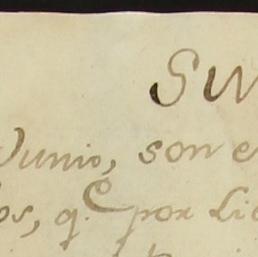 SW
Junio, son e
os, q.e por Lic